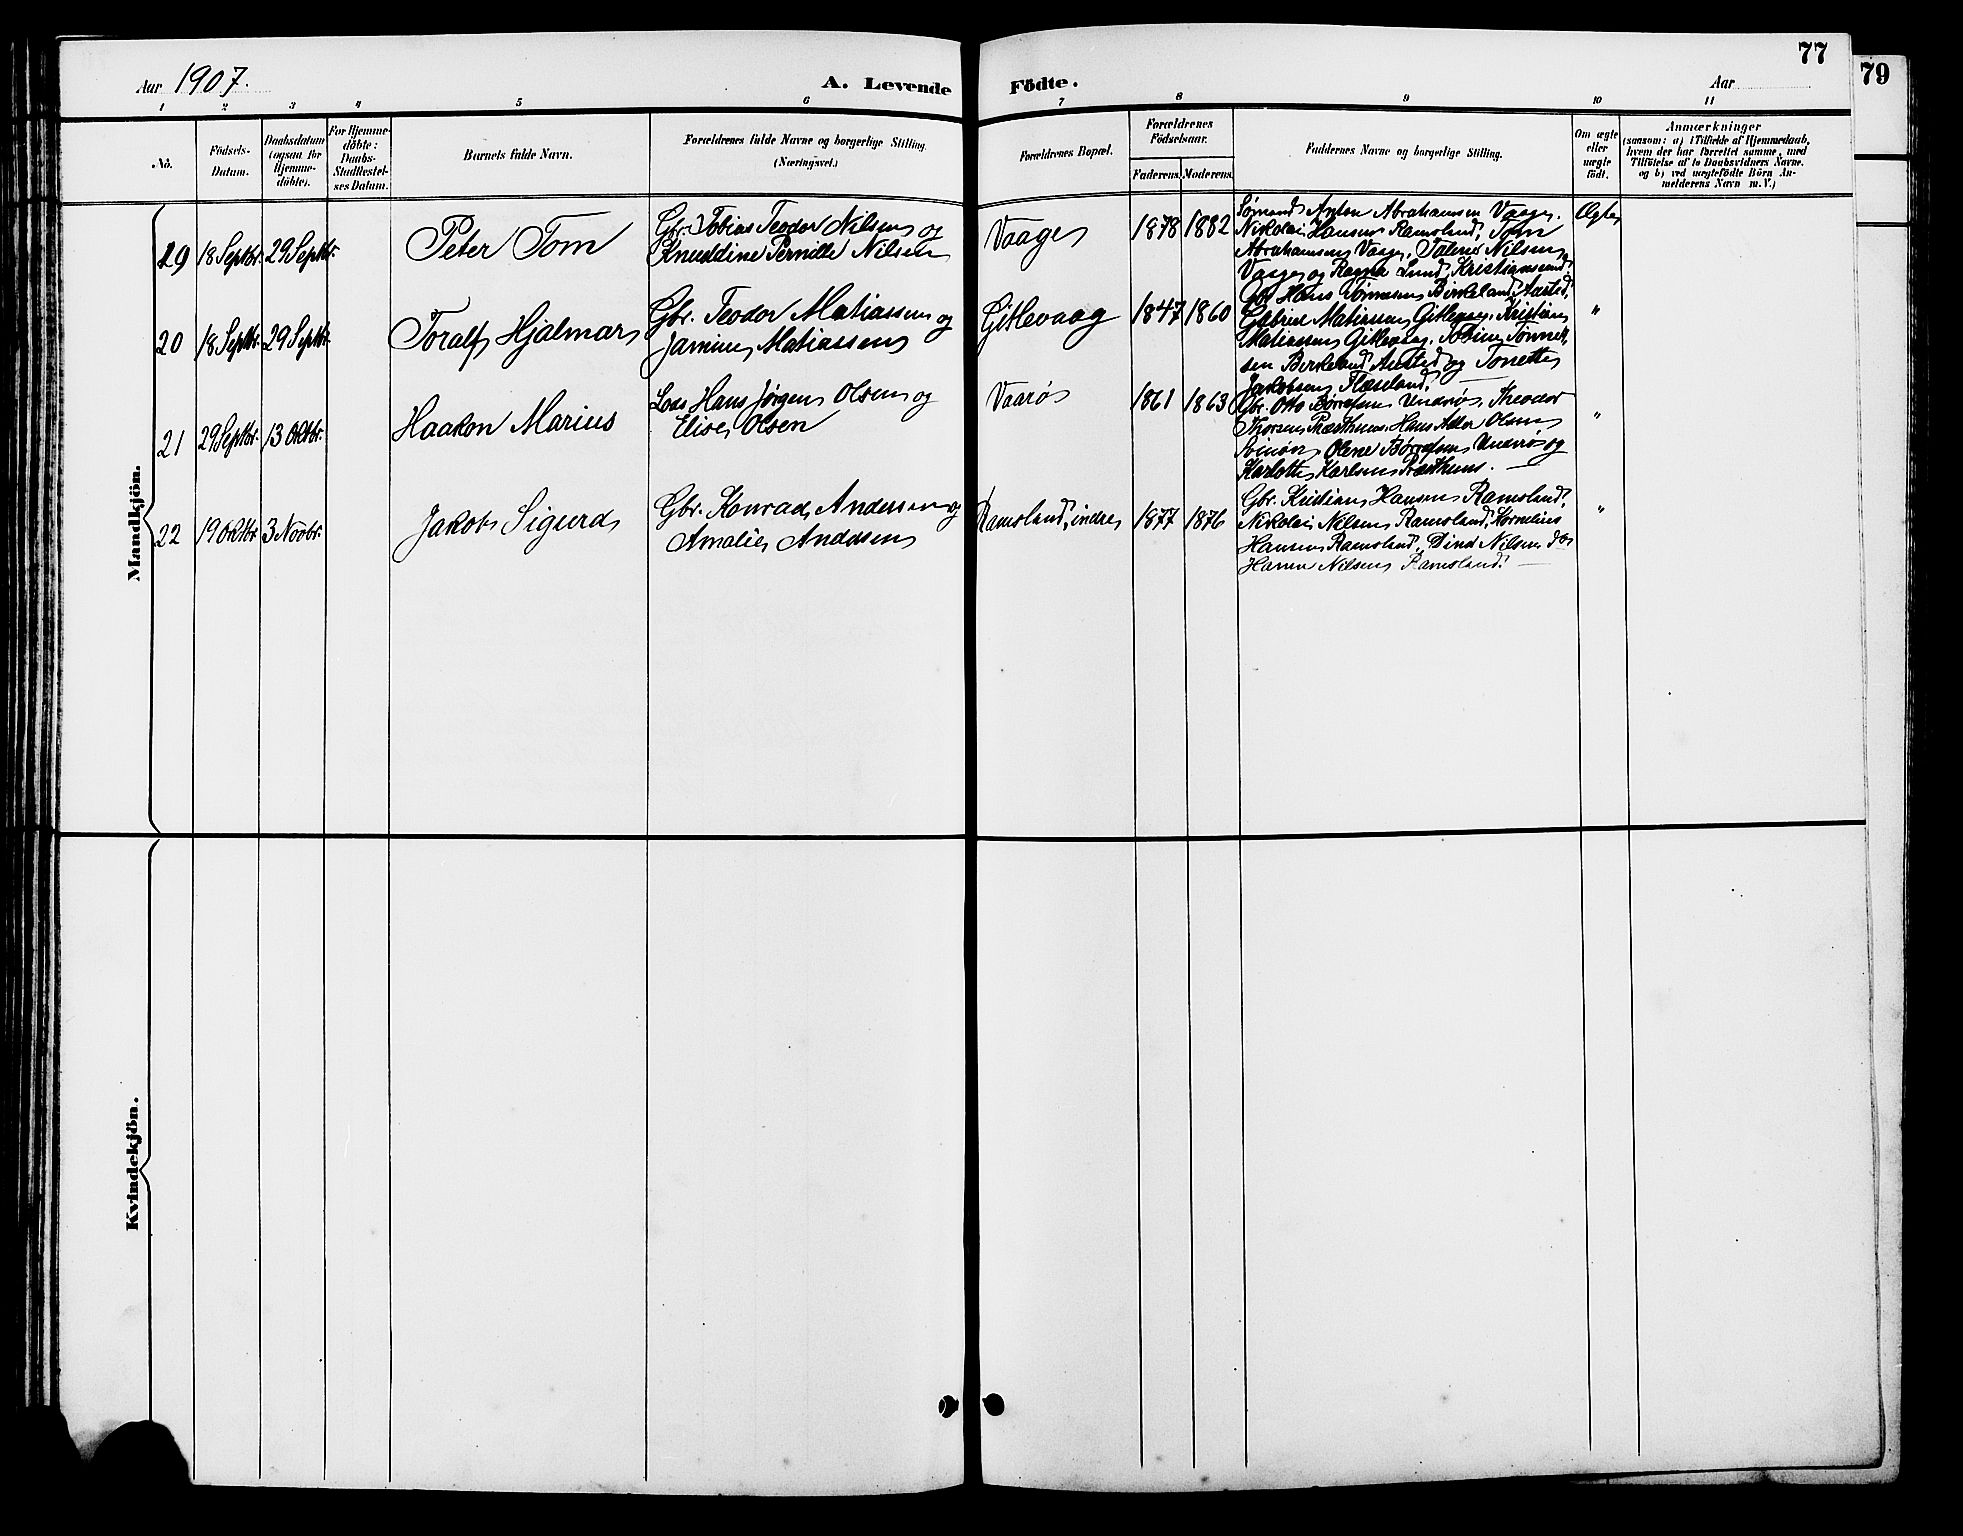 77
79
Aar 1907.
A. Levende Födte.
Aar
1 2 3 4 5 6 7 8 9 10 11
No.
Födsels-Datum.
Daabsdatum (ogsaa for Hjemme-døbte).
For Hjemme-döbte: Daabs-Stadfæstel-ses Datum.
Barnets fulde Navn.
Forældrenes fulde Navne og borgerlige Stilling. (Næringsvei.)
Forældrenes Bopæl.
Forældrenes Födselsaar.
Faderens. Moderens.
Faddernes Navne og borgerlige Stilling.
Om ægte eller uægte født.
Anmærkninger
(saasom: a) i Tilfælde af Hjemmedaab,
hvem der har forrettet samme, med
Tilföielse af to Daabsvidners Navne.
og b) ved uægtefödte Börn An-
melderens Navn m. V.)
Mandkjön.
19 18 Septbr. 29 Septbr. Peter Tom
Gbr. Tobias Teodor Nilsen og
Knuddine Pernille Nilsen
Vaage 1878 1882
Sømand Anton Abrahamsen Vaage.
Nikolai Hansen Ramsland, Tom
Abrahamsen Vaage, Nilsen
Vaage og Ragna Lund, Kristianssund.
Ægte
20 18 Septbr. 29 Septbr. Toralf Hjalmar
Gbr. Teodor Matiassen og
Jamine Matiassen
Gitlevaag 1847 1860
Gbr. Hans Tønnesen Birkeland, Austad,
Gabriel Matiassen Gitlevaag, Kristian
Matiassen Gitlevaag, Tobine Tønne-
sen Birkeland Austad og Tonette
Jakobsen
"
21 29 Septbr. 13 Oktbr. Haakon Marius
Lods Hans Jørgen Olsen og
Elise Olsen
Vaarø 1861 1863
Gbr. Otto Børresen Underø, Theodor
Thorsen Hans Olsen
Svinør, Olene Børresen Underø og
Karlotte Karlsen
"
22 19 Oktbr. 3 Novbr. Jakob Sigurd
Gbr. Konrad Andersen og
Amalie Andersen
Ramsland, indre 1877 1876
Gbr. Kristian Hansen Ramsland,
Nikolai Nilsen Ramsland, Kornelius
Hansen Ramsland, Nilsen do
Hanne Nilsen Ramsland.
"
Kvindekjön.